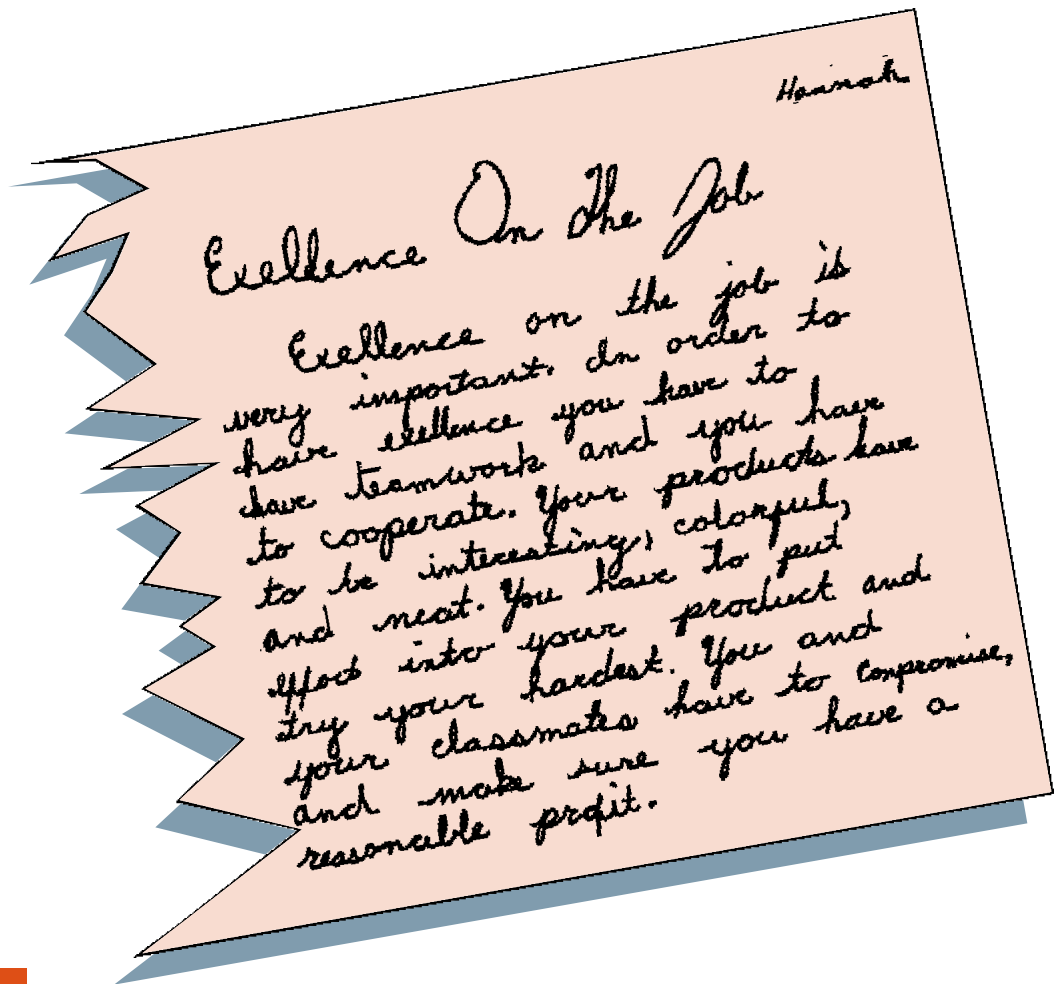 Hannah
Exellence On The Job
Exellence on the job is
very important. In order to
have exellence you have to
have teamwork and you have
to cooperate. Your products have
to be interesting, colorful,
and neat. You have to put
effort into your product and
try your hardest. You and
your classmates have to compromise,
and make sure you have a
reasonable profit.